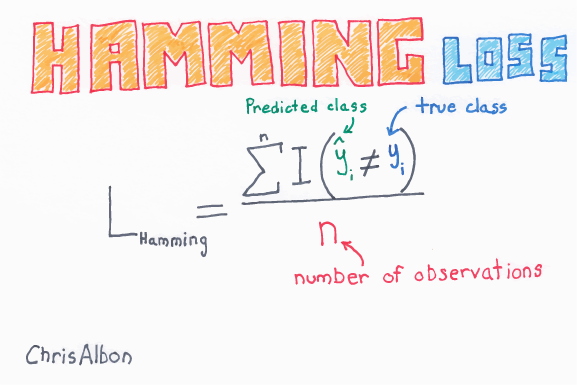 HAMMING LOSS
Predicted class true class
L Hamming = n Σ I (ŷi ≠ yi)
n
number of observations
ChrisAlbon